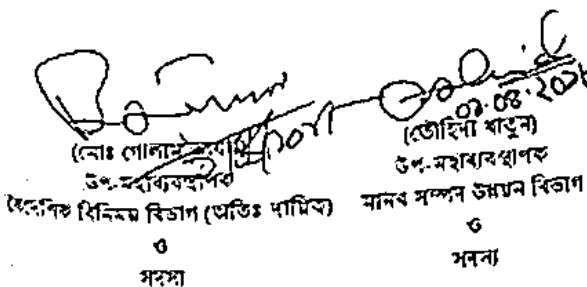 (মোঃ গোলাম
উপ-মহাব্যবস্থাপক
বৈদেশিক বিনিময় বিভাগ (অতিঃ দায়িত্ব)
ও
সদস্য
(তৌহিদা খাতুন)
উপ-মহাব্যবস্থাপক
মানব সম্পদ উন্নয়ন বিভাগ
ও
সদস্য